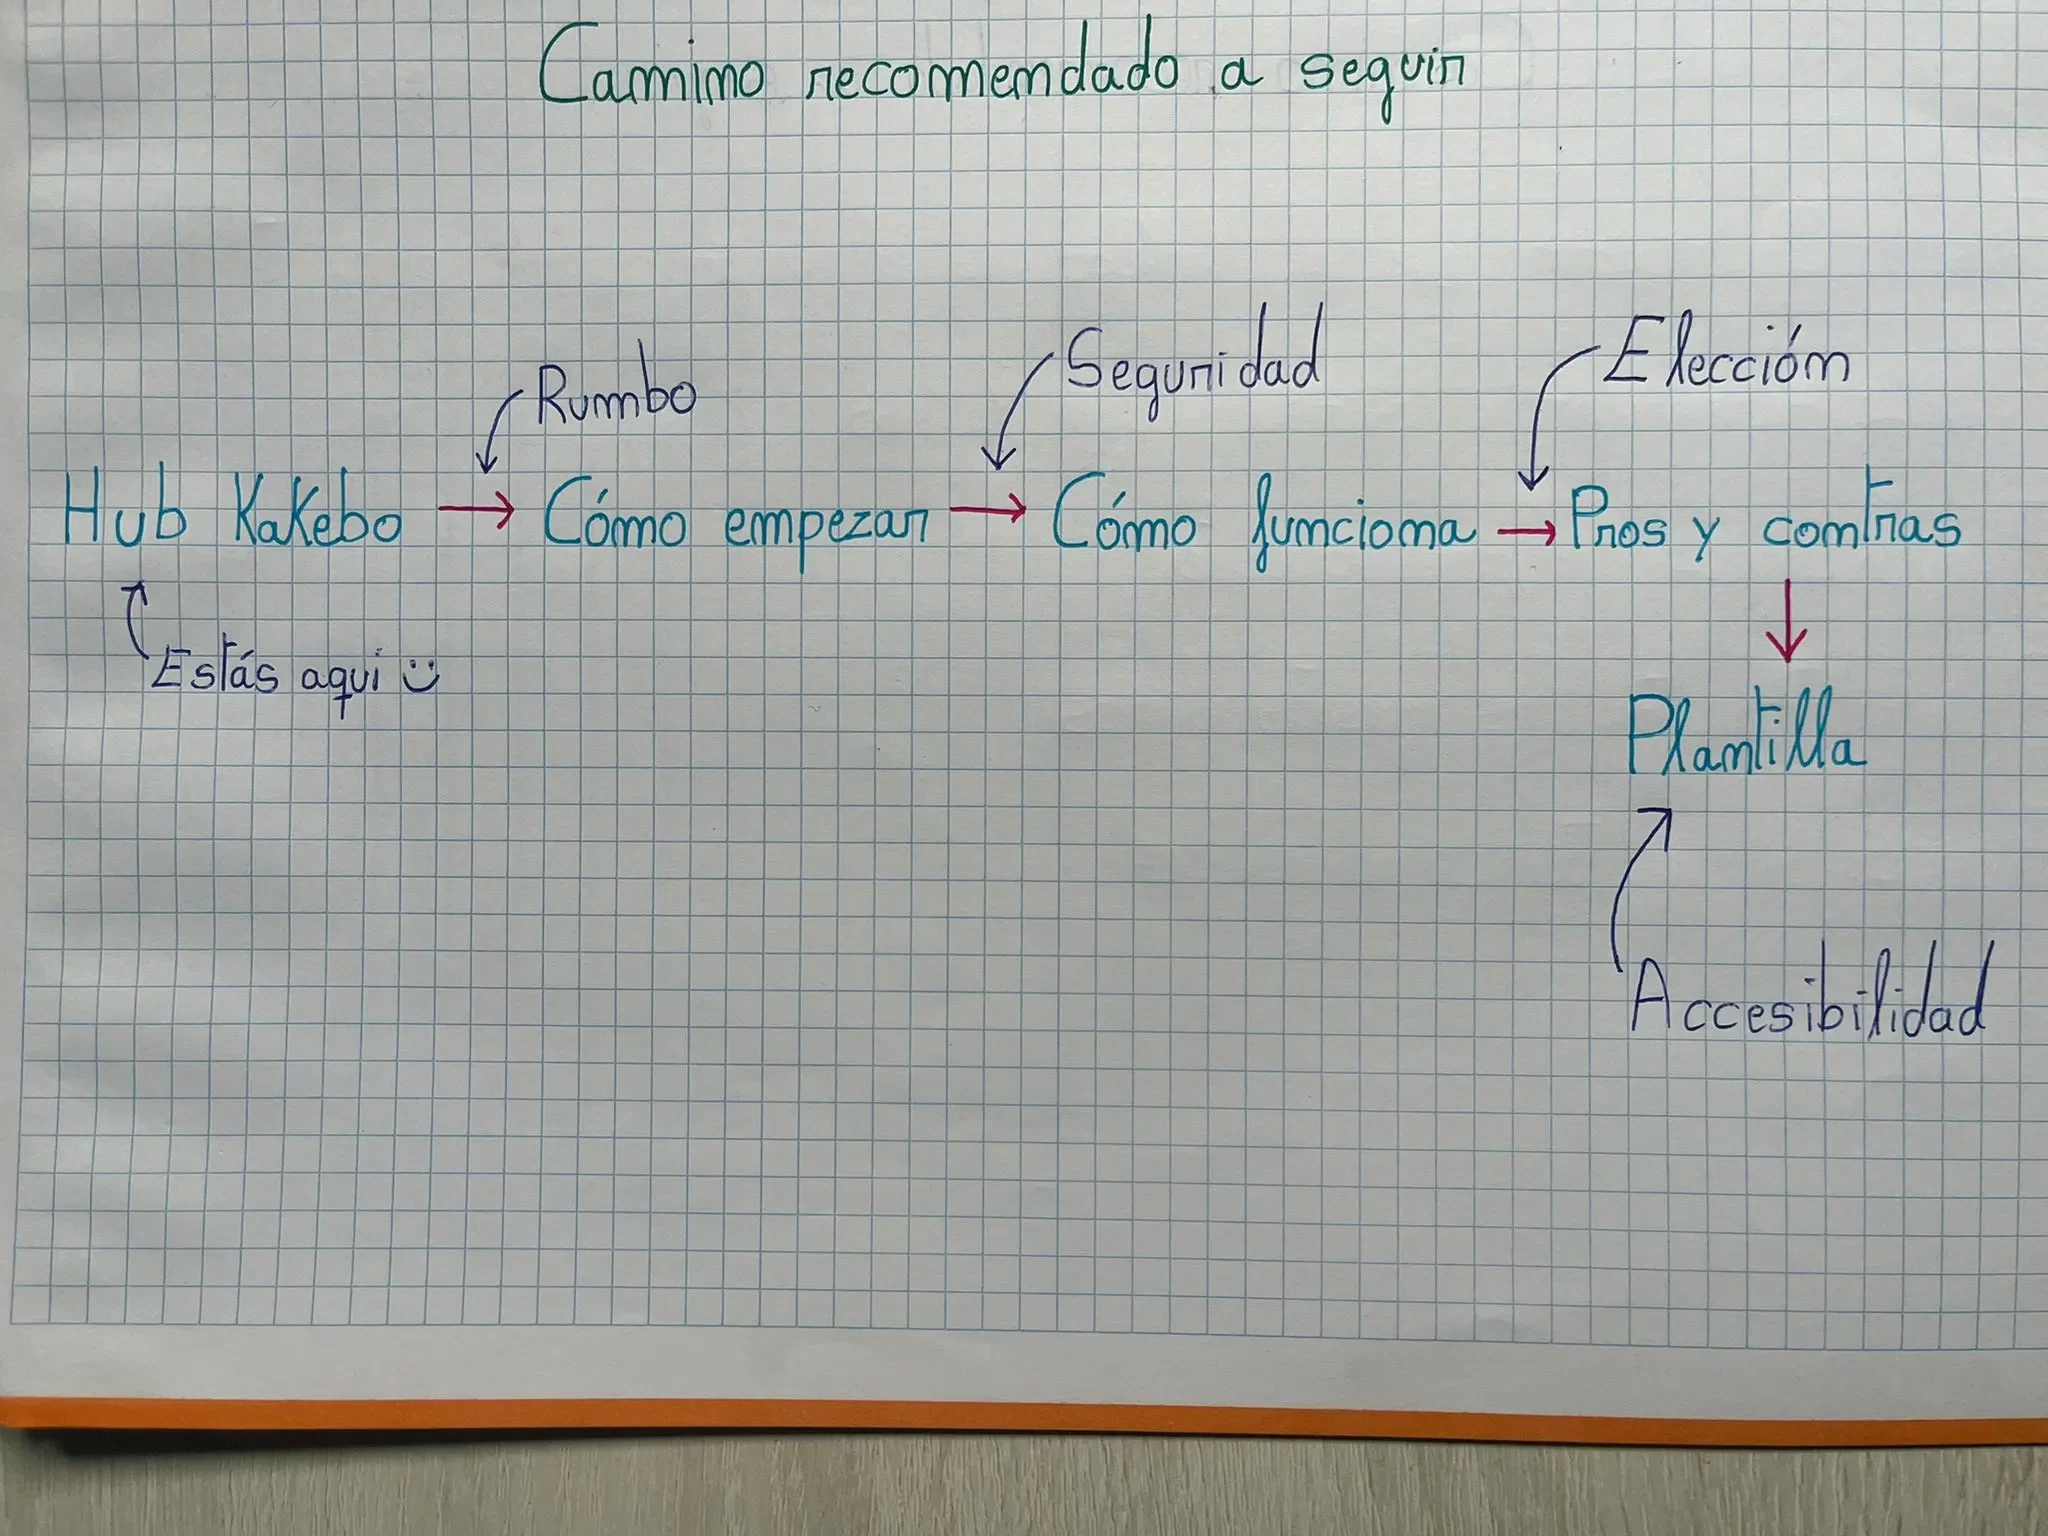 Camino recomendado a seguir
Rumbo
Seguridad
Elección
Hub Kakebo → Cómo empezar → Cómo funciona → Pros y contras
Estás aqui :)
Plantilla
Accesibilidad